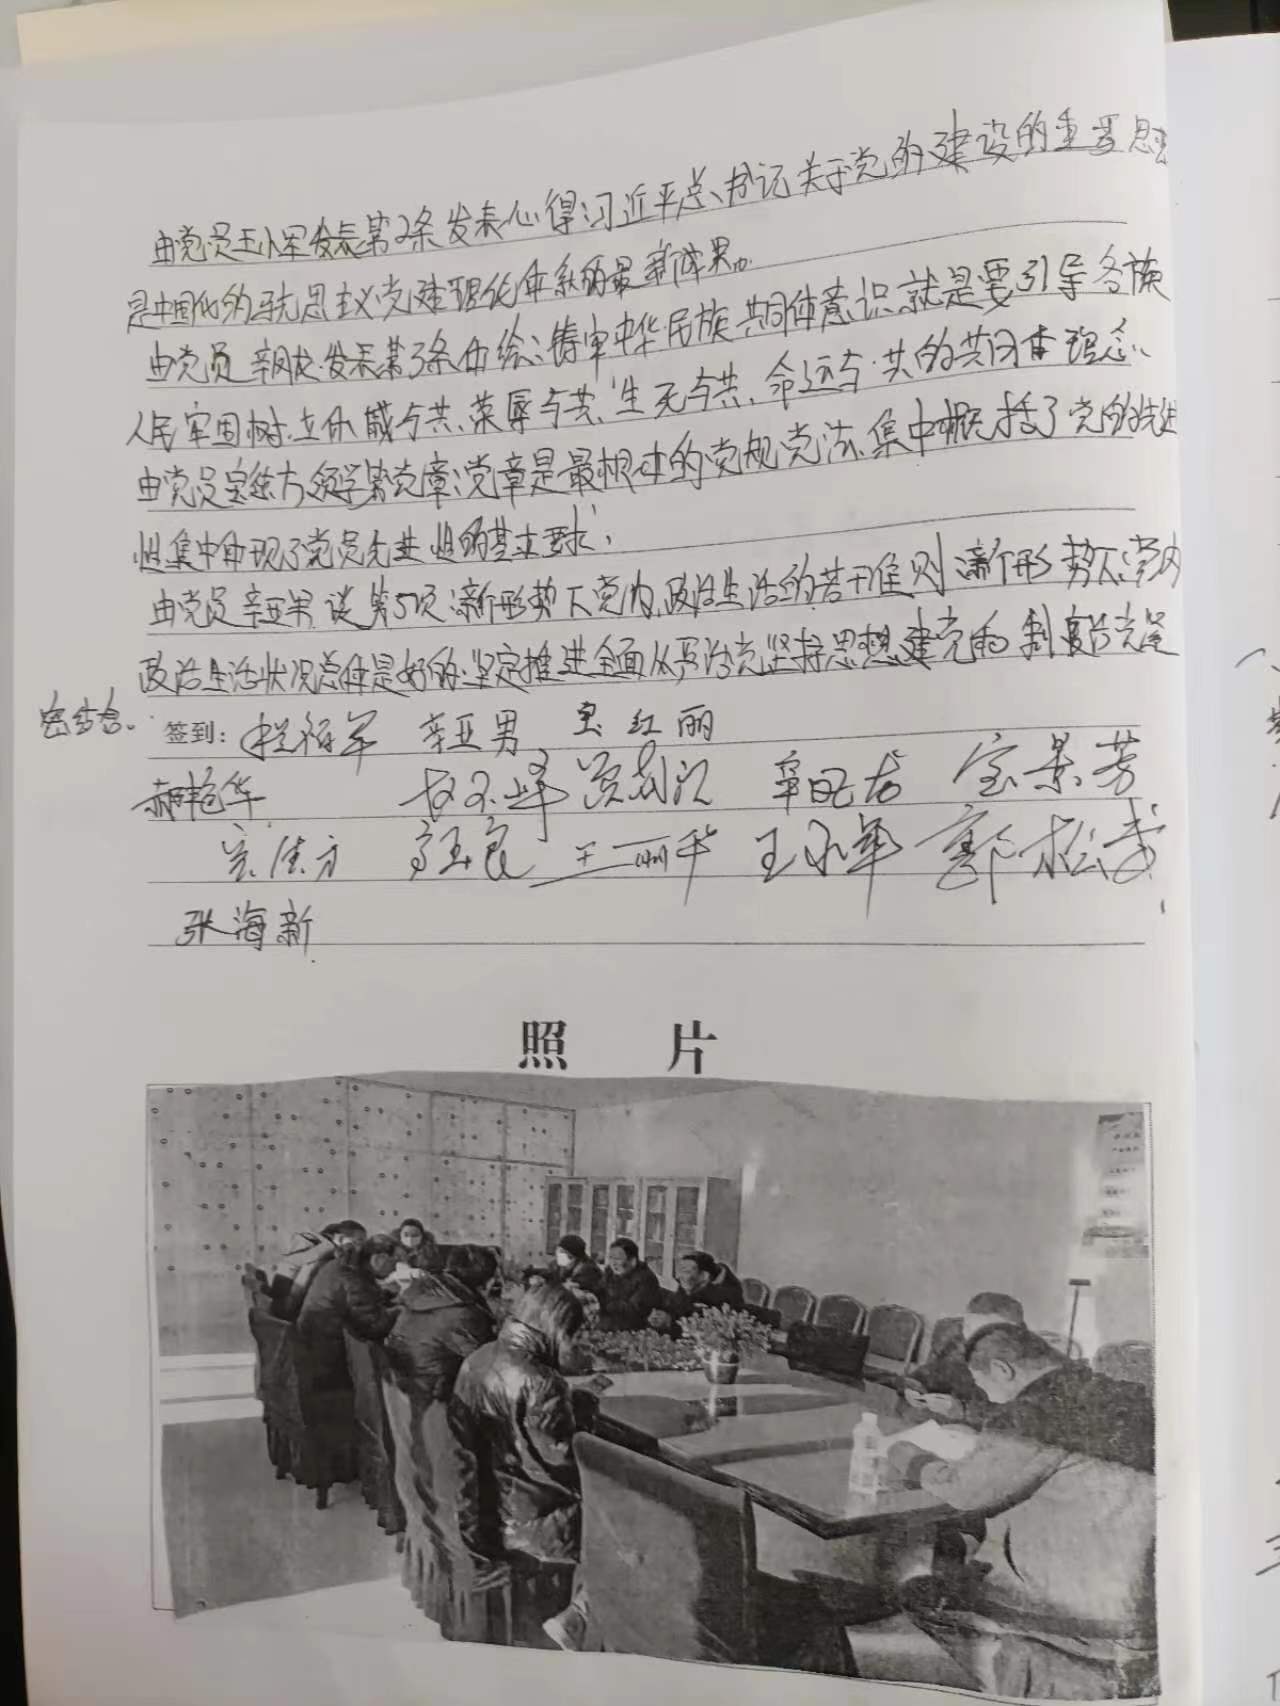 由党员王小军发表第2条发表心得:习近平总书记关于党的建设的重要思想
是中国化的马克思主义党建理论体系的最新成果。
由党员辛旺龙发表第3条由绘:铸牢中华民族共同体意识就是要引导各族
人民牢固树立休戚与共、荣辱与共、生死与共、命运与共的共同体理念、
由党员宝德方领学第党章:党章是最根本的党规党法,集中概括了党的先进
性集中体现了党员先进性的基本要求;
由党员辛亚男谈第5项:新形势下党内政治生活的若干准则 新形势下党内
政治生活状况总体是好的:坚定推进全面从严治党坚持思想建党和制度治党紧
密结合。
签到: 辛亚男 红丽
郝艳华 辛旺龙 宝景芳
王丽华 王小军 郭松
张海新
照 片